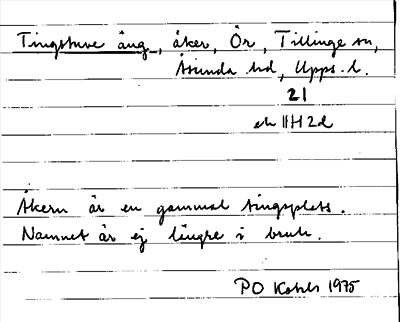 Tingstuve äng, åker, Ör, Tillinge sn,
Åsunda hd, Upps. l.
21
ek 11H2d
Åkern är en gammal tingsplats.
Namnet är ej längre i bruk.
PO 1975